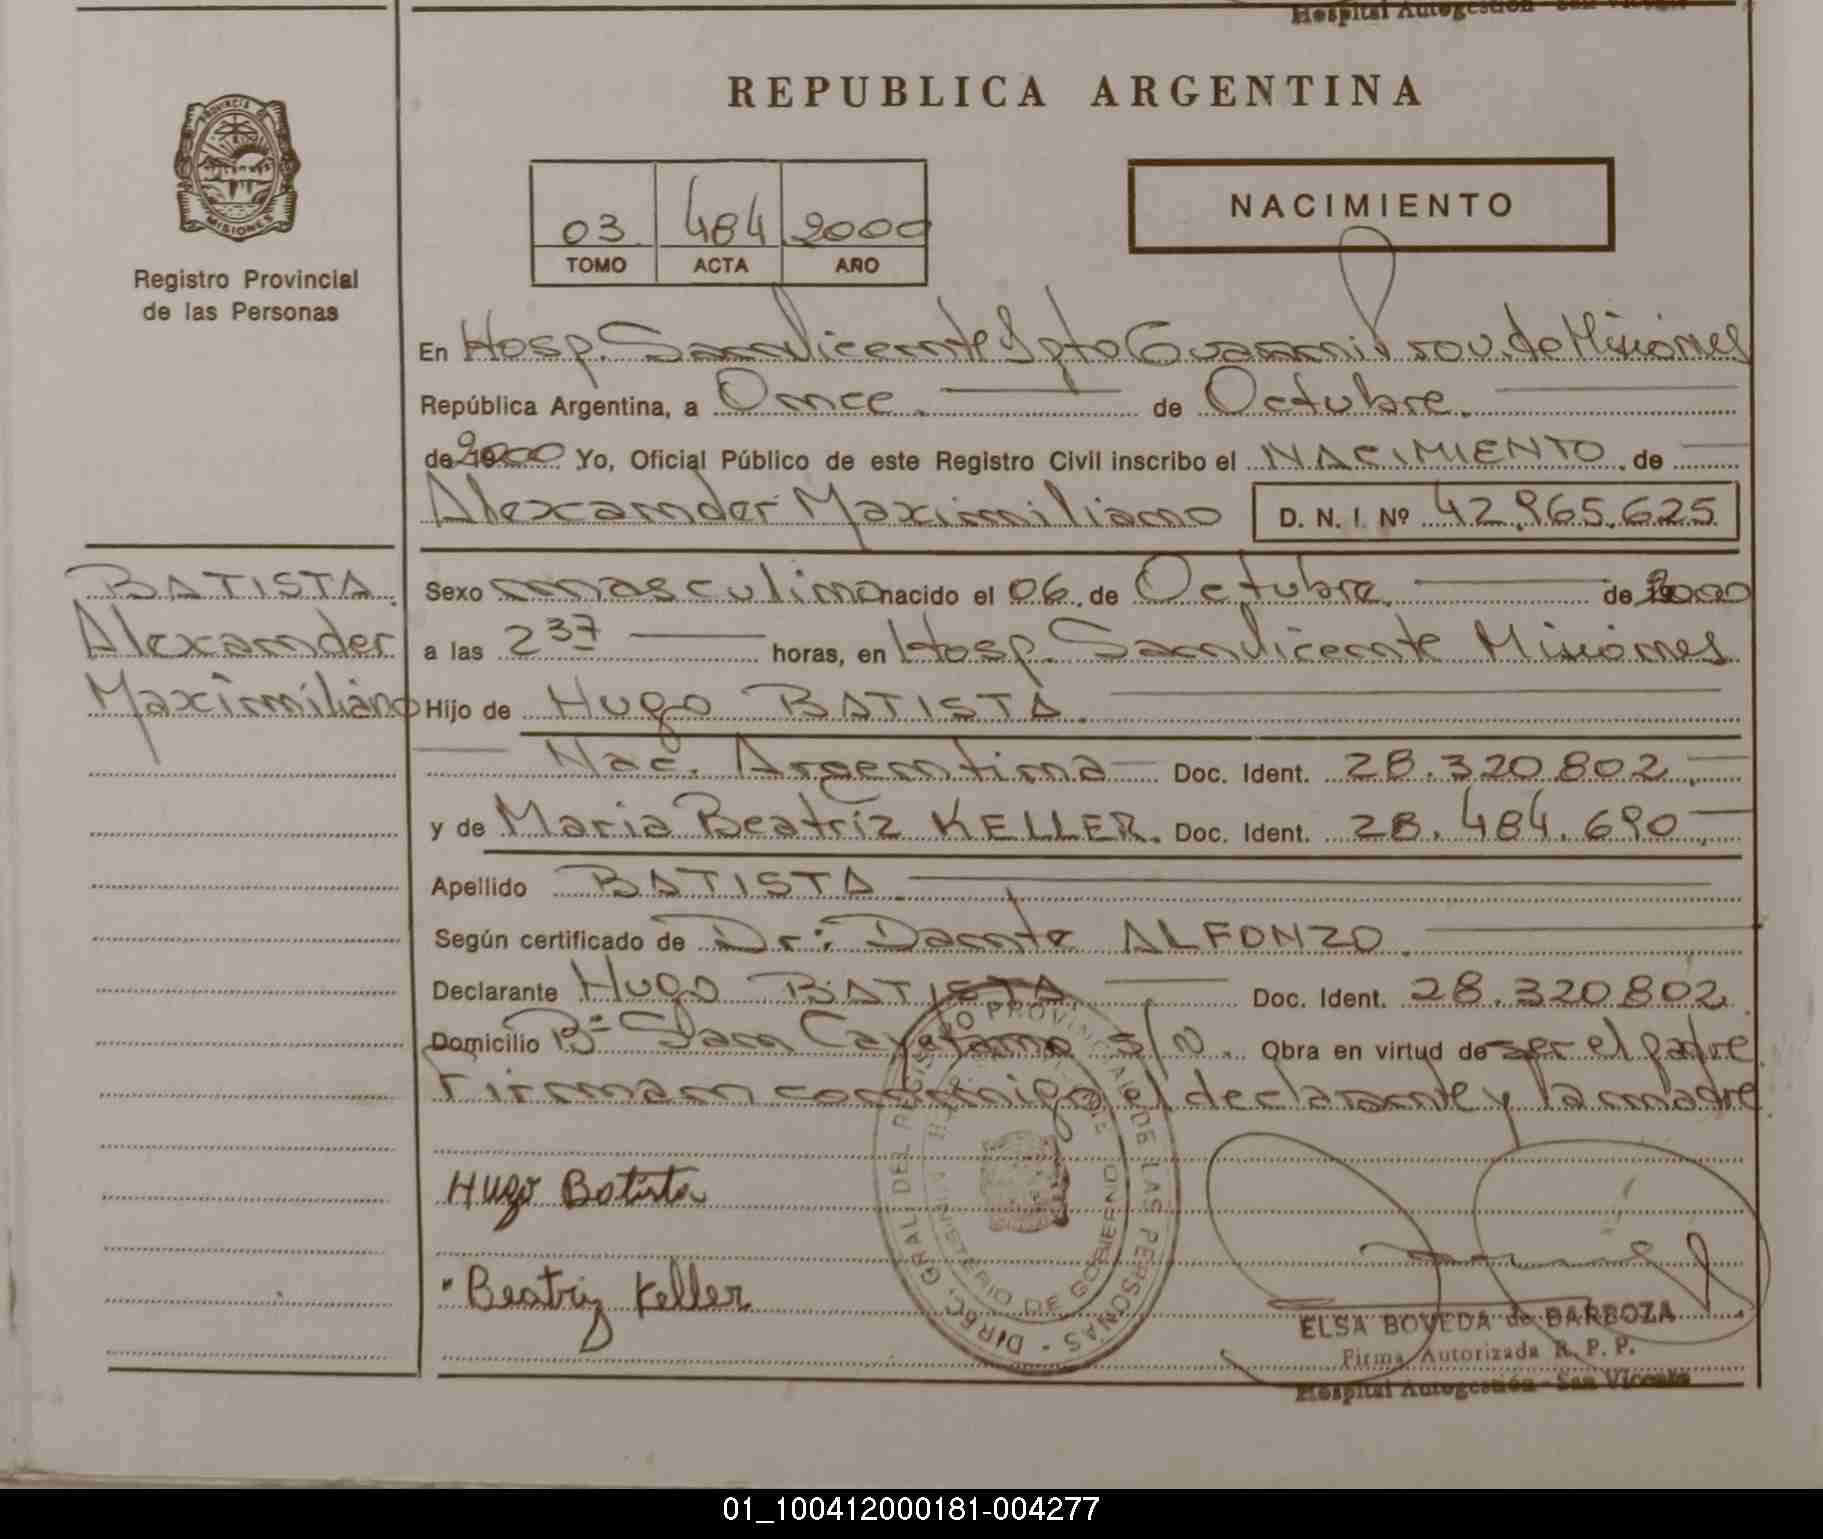 Hospital Autogestión - San Vicente
REPUBLICA ARGENTINA
PROVINCIA DE
MISIONES
Registro Provincial
de las Personas
03 484 2000
TOMO ACTA AÑO
NACIMIENTO
En Hosp. San Vicente Dpto Guaraní Prov. de Misiones
República Argentina, a Once. de Octubre.
de 2000 Yo, Oficial Público de este Registro Civil inscribo el NACIMIENTO. de
Alexander Maximiliano D. N. I. Nº 42.965.625
BATISTA.
Alexander
Maximiliano
Sexo masculino nacido el 06. de Octubre. de 2000
a las 2 37 horas, en Hosp. San Vicente Misiones
Hijo de Hugo BATISTA.
Nac. Argentina Doc. Ident. 28.320.802.
y de Maria Beatriz KELLER. Doc. Ident. 28.484.690.
Apellido BATISTA.
Según certificado de Dr: Dante ALFONZO.
Declarante Hugo BATISTA Doc. Ident. 28.320.802.
Domicilio Bº San Cayetano s/N. Obra en virtud de ser el padre.
Firman conmigo el declarante y la madre.
DIREC. GRAL. DEL REGISTRO PROVINCIAL DE LAS PERSONAS
MINISTERIO DE GOBIERNO
Hugo Batista
Beatriz Keller
ELSA BOVEDA de BARBOZA
Firma Autorizada R. P. P.
Hospital Autogestión - San Vicente
01_100412000181-004277